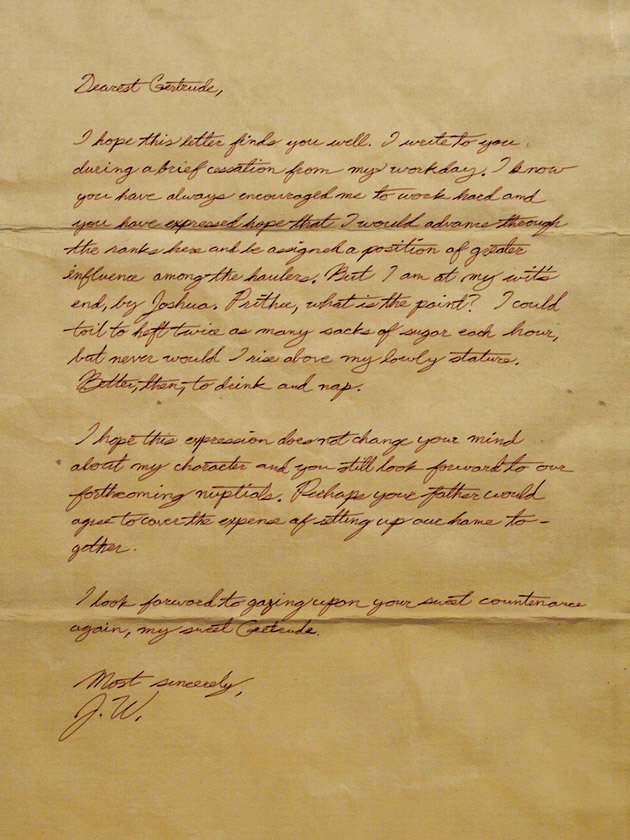 Dearest Gertrude,
I hope this letter finds you well. I write to you
during a brief cessation from my workday. I know
you have always encouraged me to work hard and
you have expressed hope that I would advance through
the ranks here and be assigned a position of greater
influence among the haulers. But I am at my wit's
end, by Joshua. Prithee, what is the point? I could
toil to heft twice as many sacks of sugar each hour,
but never would I rise above my lowly stature.
Better, then, to drink and nap.
I hope this expression does not change your mind
about my character and you still look forward to our
forthcoming nuptials. Perhaps your father would
agree to cover the expense of setting up our home to-
gether.
I look forward to gazing upon your sweet countenance
again, my sweet Gertrude.
Most sincerely,
J. W.